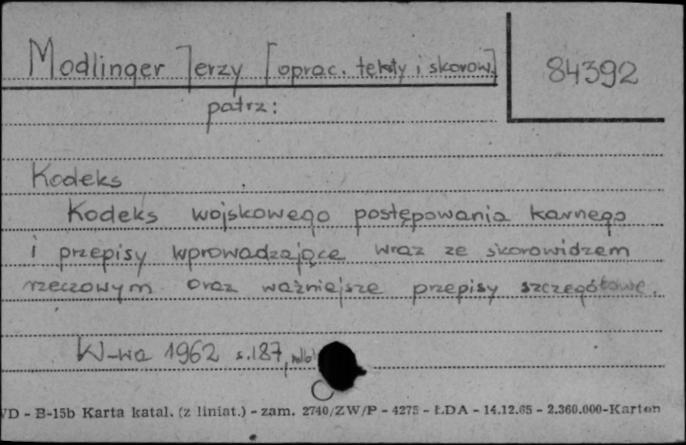 Modlinger Jerzy [oprac. teksty i skorow.]
84392
patrz:
Kodeks
Kodeks wojskowego postępowania karnego
i przepisy wprowadzające wraz ze skorowidzem
rzeczowym oraz ważniejsze przepisy szczegółowe.
W-wa 1962 s.187,
/D - B-15b Karta katal. (z liniat.) - zam. 2740/ZW/P - 4275 - ŁDA - 14.12.65 - 2.360.000-Karton